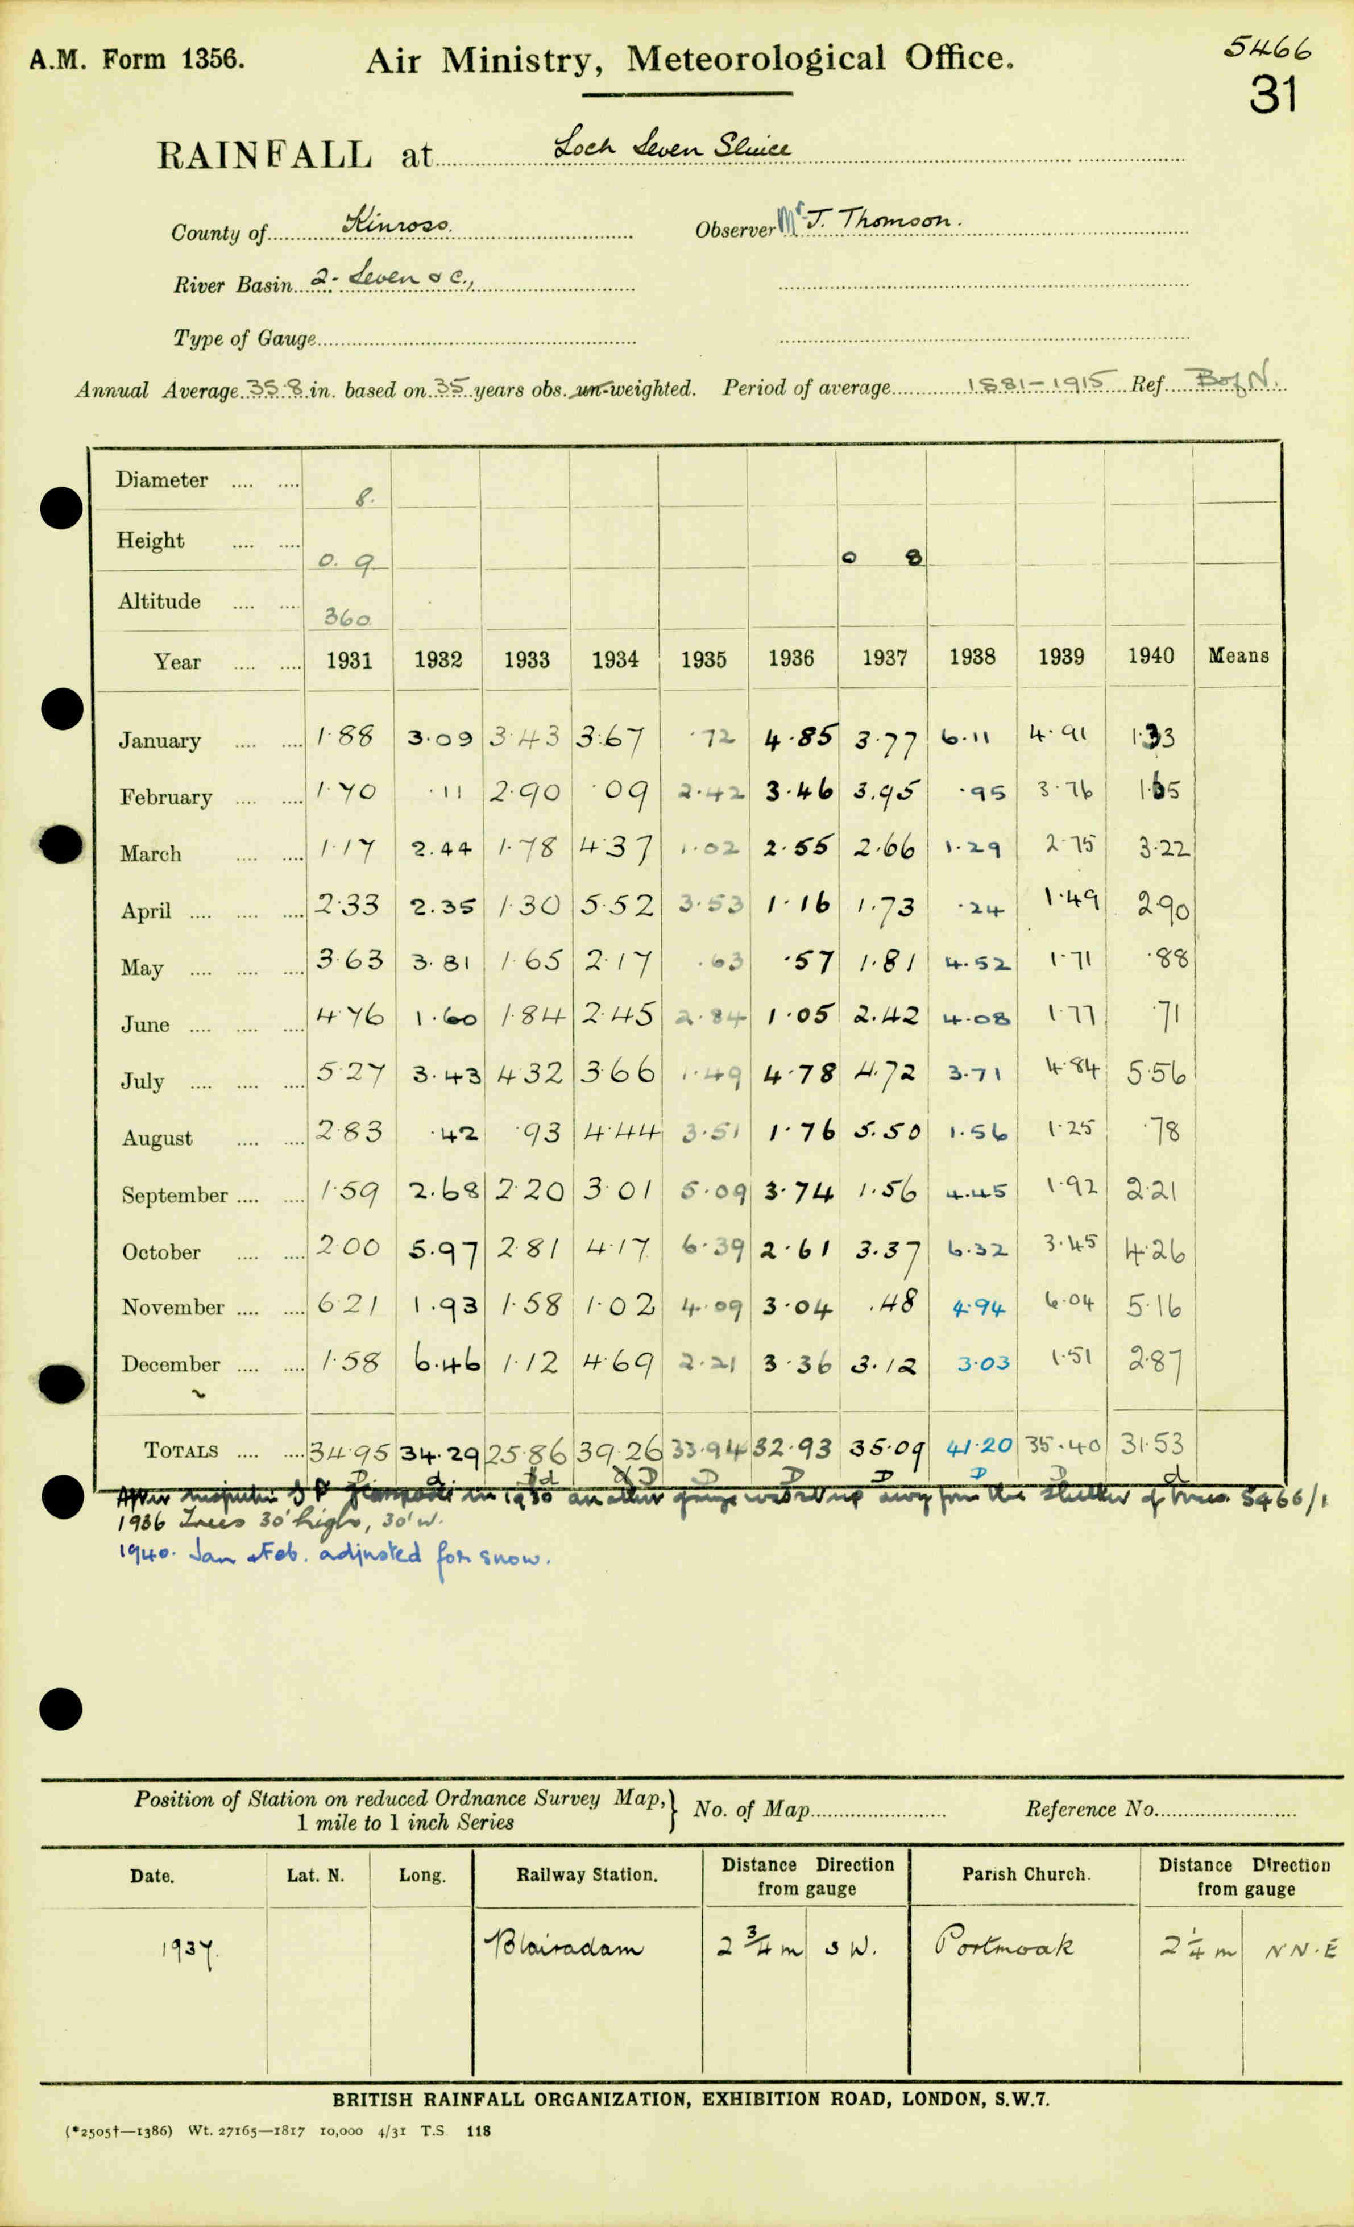 A.M. Form 1356.
Air Ministry, Meteorological Office.
5466
31
RAINFALL at Loch Leven Sluice
County of Kinross. Observer Mr J. Thomson.
River Basin 2 - Leven & C.,
Type of Gauge
Annual Average 35.8 in. based on 35 years obs. un-weighted. Period of average 1881-1915 Ref. B of N.
Diameter 8.
Height 0. 9 0 8
Altitude 360
Year 1931 1932 1933 1934 1935 1936 1937 1938 1939 1940 Means
January 1.88 3.09 3.43 3.67 .72 4.85 3.77 6.11 4.91 1.33
February 1.70 .11 2.90 .09 2.42 3.46 3.95 .95 3.76 1.65
March 1.17 2.44 1.78 4.37 1.02 2.55 2.66 1.29 2.75 3.22
April 2.33 2.35 1.30 5.52 3.53 1.16 1.73 .24 1.49 2.90
May 3.63 3.81 1.65 2.17 .63 .57 1.81 4.52 1.71 .88
June 4.76 1.60 1.84 2.45 2.84 1.05 2.42 4.08 1.77 .71
July 5.27 3.43 4.32 3.66 1.49 4.78 4.72 3.71 4.84 5.56
August 2.83 .42 .93 4.44 3.51 1.76 5.50 1.56 1.25 .78
September 1.59 2.68 2.20 3.01 5.09 3.74 1.56 4.45 1.92 2.21
October 2.00 5.97 2.81 4.17 6.39 2.61 3.37 6.32 3.45 4.26
November 6.21 1.93 1.58 1.02 4.09 3.04 .48 4.94 6.04 5.16
December 1.58 6.46 1.12 4.69 2.21 3.36 3.12 3.03 1.51 2.87
TOTALS 34.95 34.29 25.86 39.26 33.94 32.93 35.09 41.20 35.40 31.53
D d d D D D D D D d
After in 1930 another gauge was set up away from the shelter of trees. 5466/1
1936 Trees 30' high, 30' w.
1940. Jan & Feb. adjusted for snow.
Position of Station on reduced Ordnance Survey Map,
1 mile to 1 inch Series
No. of Map Reference No.
Date. Lat. N. Long. Railway Station. Distance Direction from gauge Parish Church. Distance Direction from gauge
1937. Blairadam 2 3/4 m S W. Portmoak 2 1/4 m N N. E
BRITISH RAINFALL ORGANIZATION, EXHIBITION ROAD, LONDON, S.W.7.
(*2505†—1386) Wt. 27165—1817 10,000 4/31 T.S. 118